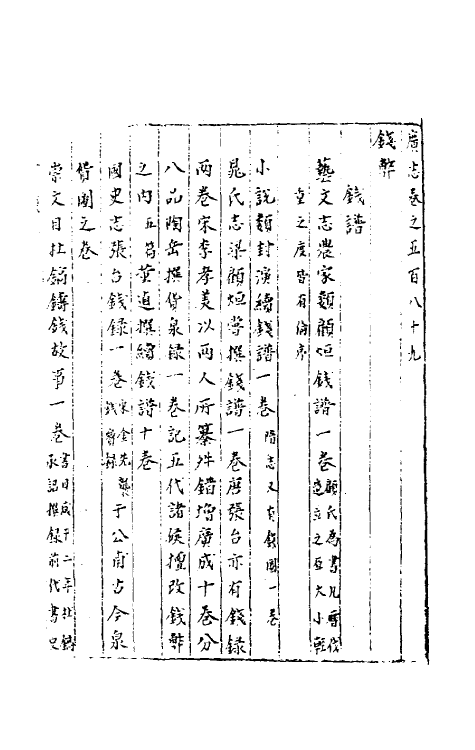 廣志卷之五百八十九
錢幣
錢譜
藝文志農家類顧烜錢譜一卷顧氏爲書凡歷代
造立之原大小輕
重之度皆有倫序
小說類封演續錢譜一卷隋志又有錢圖一卷
晁氏志梁顧烜嘗撰錢譜一卷唐張台亦有錢錄
兩卷宋李孝美以兩人所纂舛錯增廣成十卷分
八品陶岳撰貨泉錄一卷記五代諸侯擅改錢幣
之由五篇董逌撰續錢譜十卷
國史志張台錢錄一卷宋金光襲
錢寶錄于公甫古今泉
貨圖之卷
崇文目杜鎬鑄錢故事一卷書目咸平二年杜鎬
承詔撰錄前代書史